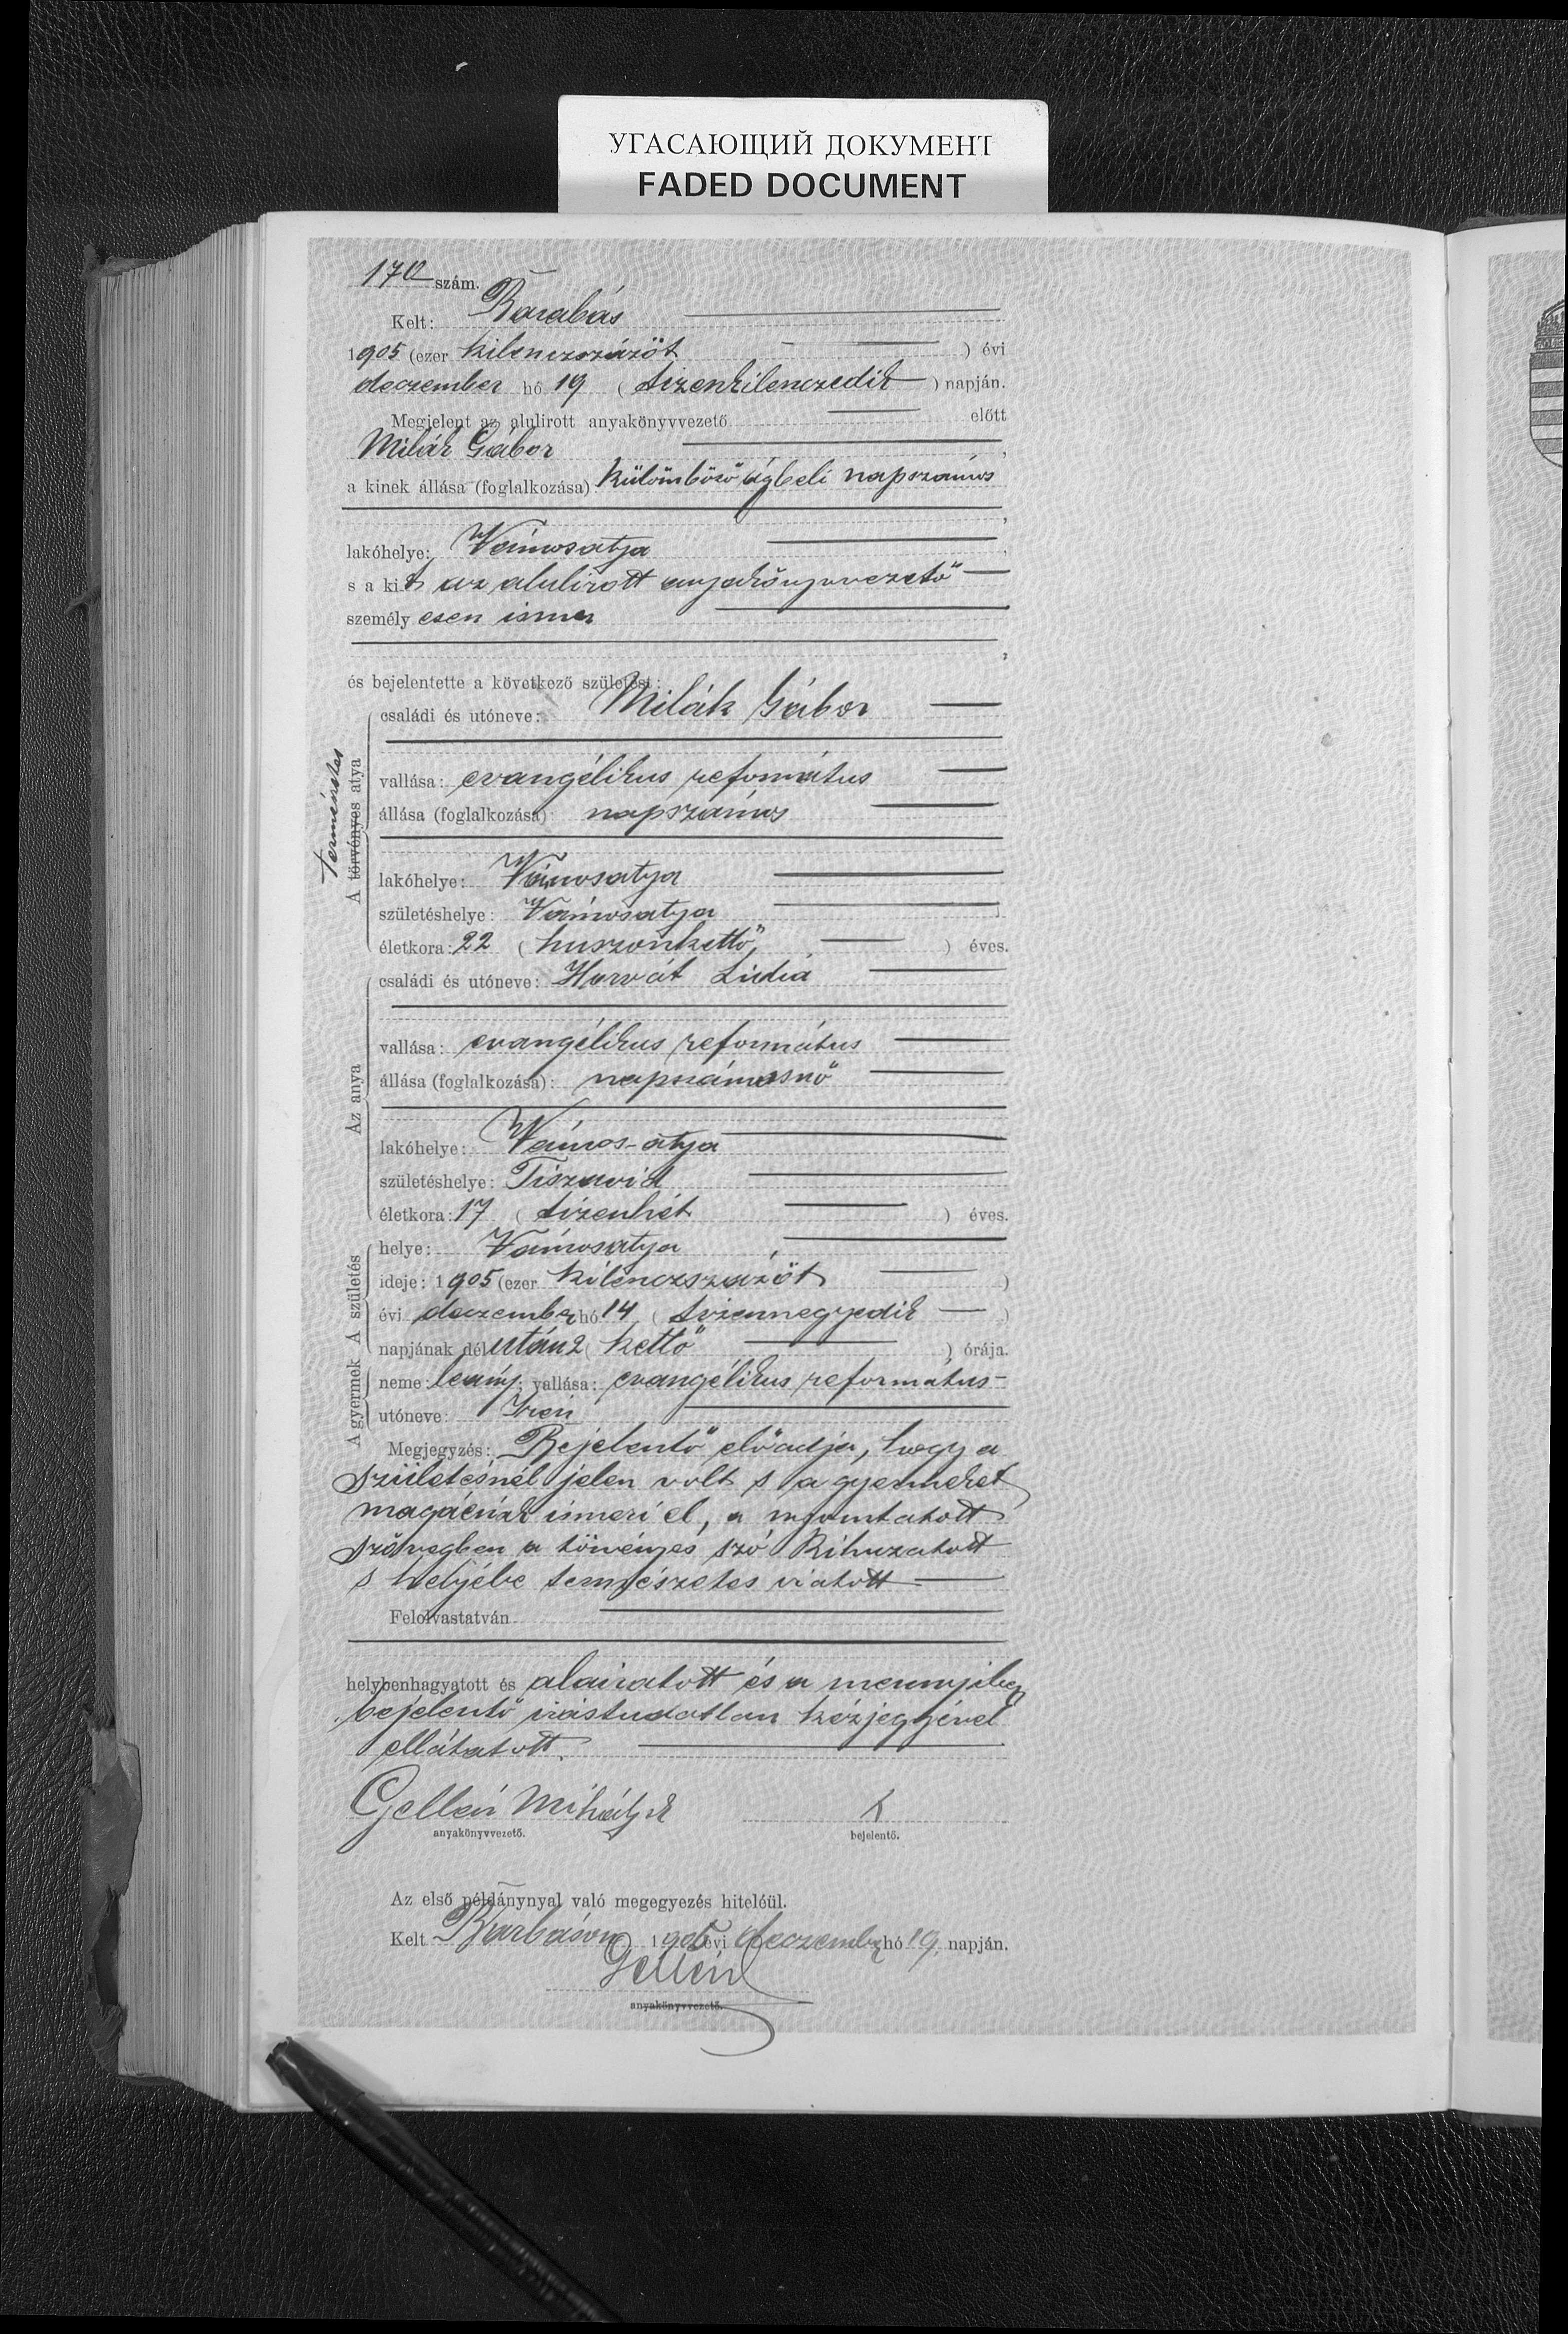 УГАСАЮЩИЙ ДОКУМЕНТ
FADED DOCUMENT
170 szám.
Kelt: Barabás
1905 (ezer kilenczszázöt ) évi
deczember hó 19 ( tizenkilenczedik ) napján.
Megjelent az alulirott anyakönyvvezető előtt
Milák Gábor ,
a kinek állása (foglalkozása): különböző ágbeli napszámos
,
lakóhelye: Vámosatya ,
s a kit az alulirott anyakönyvvezető
személyesen ismer
,
és bejelentette a következő születést:
Természetes
A törvényes atya
családi és utóneve: Milák Gábor
vallása: evangélikus református
állása (foglalkozása): napszámos
lakóhelye: Vámosatya
születéshelye: Vámosatya
életkora: 22 ( huszonkettő ) éves.
Az anya
családi és utóneve: Horvát Lidia
vallása: evangélikus református
állása (foglalkozása): napszámosnő
lakóhelye: Vámos-atya
születéshelye: Tiszavid
életkora: 17 ( tizenhét ) éves.
A születés
helye: Vámosatya
ideje: 1905 (ezer kilenczszázöt )
évi deczember hó 14 ( tizennegyedik )
napjának délután 2 ( kettő ) órája.
A gyermek
neme: leány; vallása: evangélikus református
utóneve: Irén
Megjegyzés: Bejelentő előadja, hogy a
születésnél jelen volt s a gyermeket
magáénak ismeri el, a nyomtatott
szövegben a törvényes szó kihuzatott
s helyébe természetes iratott
Felolvastatván
helybenhagyatott és alairatott és a mennyiben
bejelentő irástudatlan kézjegyével
ellátatott.
Gellén Mihály
anyakönyvvezető. bejelentő.
Az első példánynyal való megegyezés hiteléül.
Kelt Barbáson 1905 évi deczember hó 19. napján.
Gellén
anyakönyvvezető.